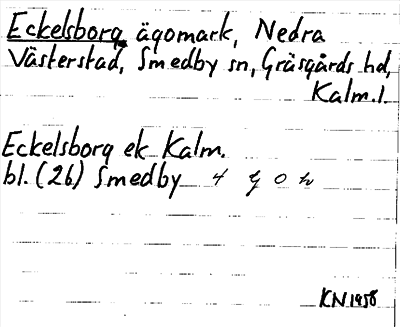 Eckelsborg ägomark, Nedra
Västerstad, Smedby sn, Gräsgårds hd,
Kalm.l.
Eckelsborg ek Kalm.
bl. (26) Smedby 4 g o h
KN 1958